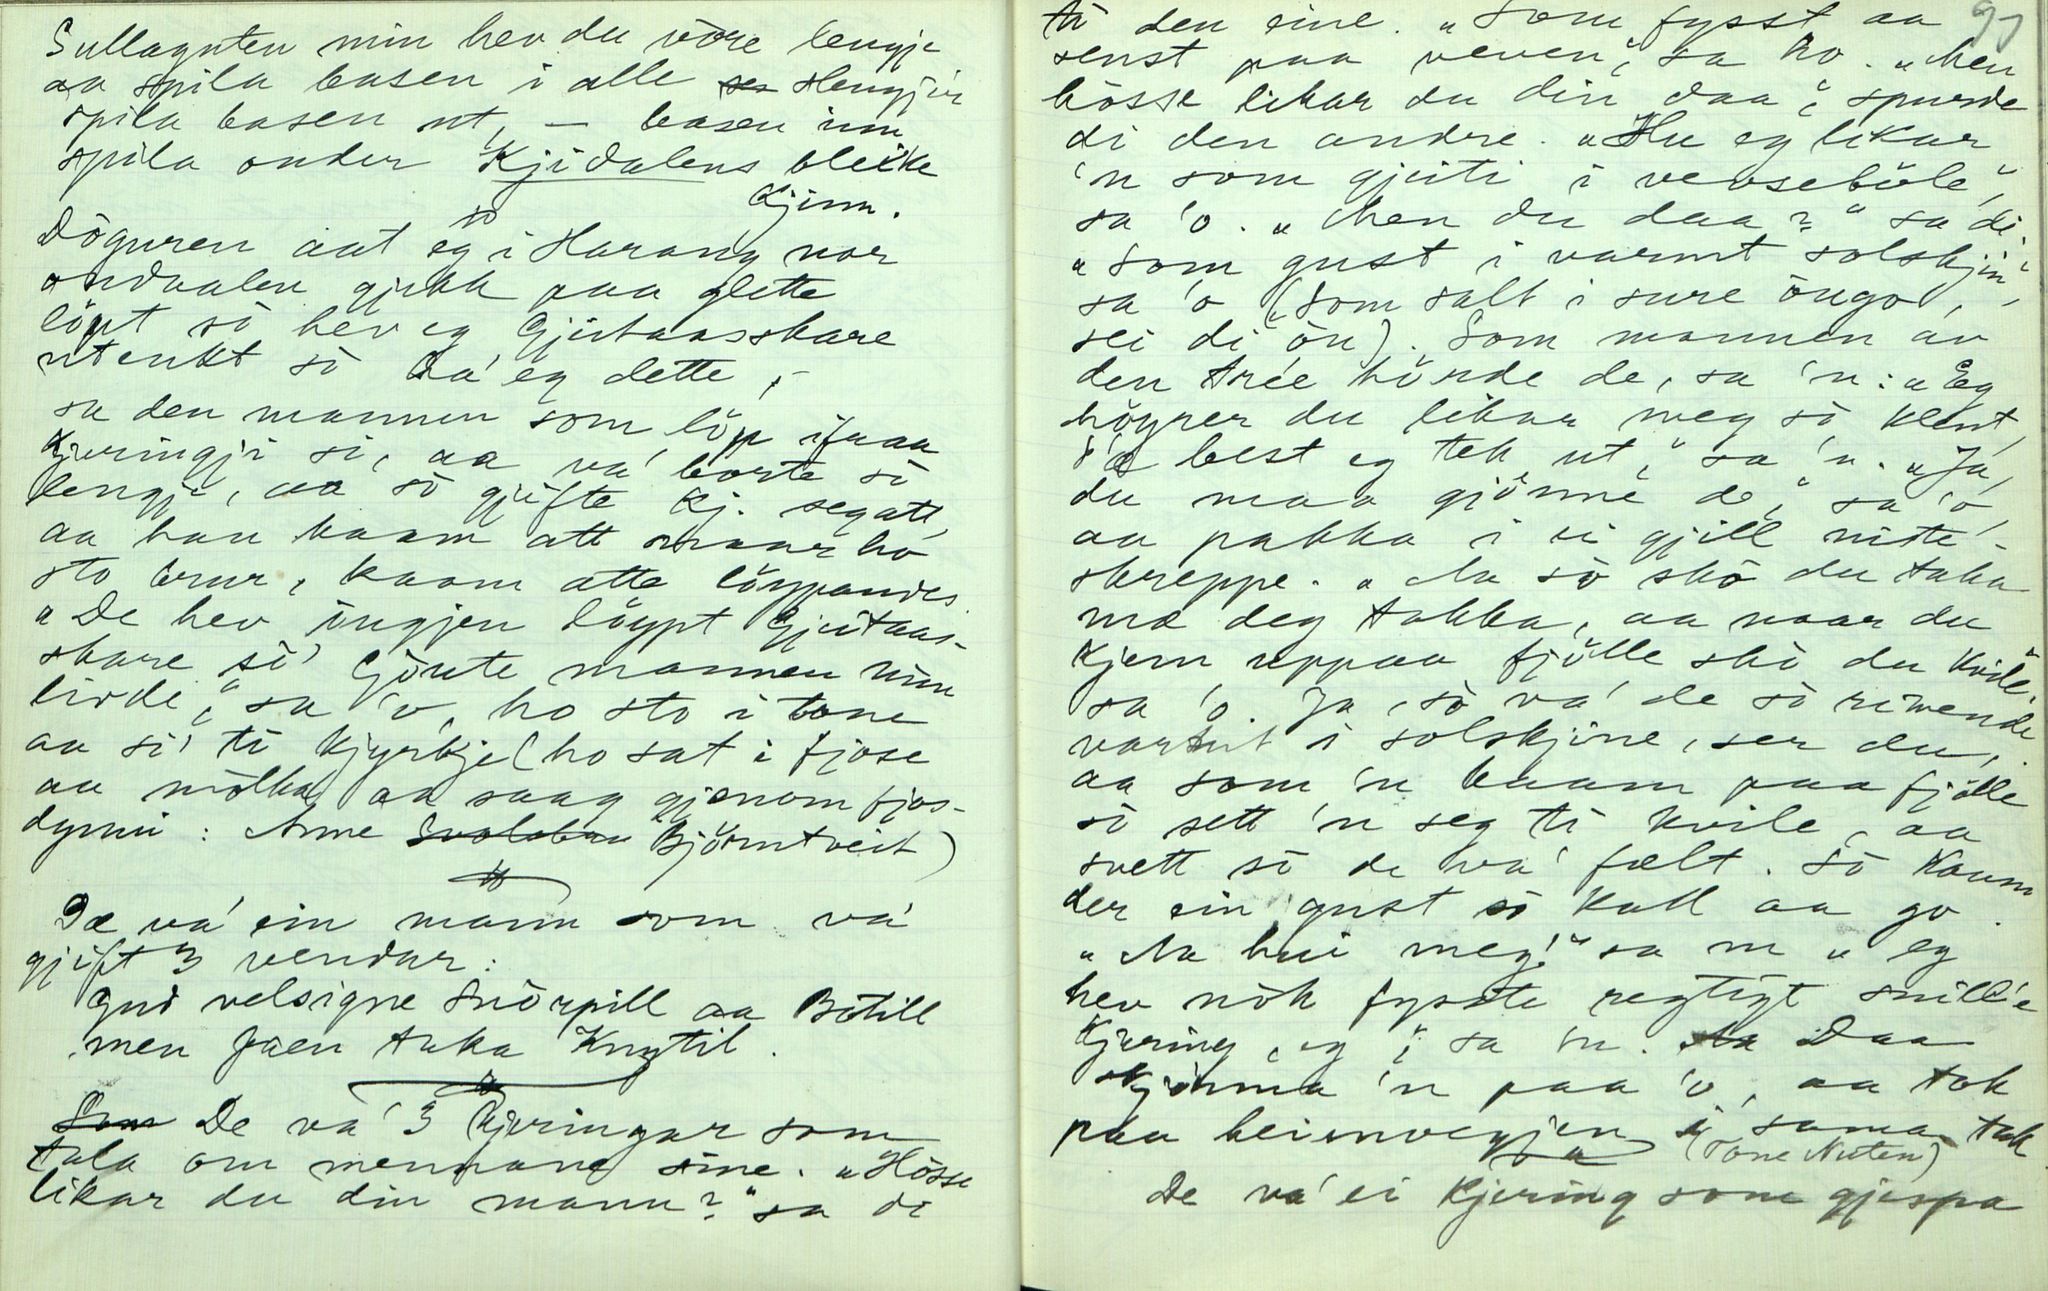 Sullaguten min hev du vöre lengje
aa spila basen i alle sen Hengjir
spila basen ut, — basen inn
spila onder Kjidalens bleike
Kjinn.
so
Döguren aat eg i Harang nor
ondaalen gjekk paa glette
löpt sö hev eg Gjeitaasskare
utenkt sö sa' eg dette, –
sa den mannen som löp ifraa
Kjeringji si, aa va' borte sö
lengje, aa sö gjifte Kj. seg att,
aa han kaam att naar ho
sto brur, kaam atte löypandes.
„De hev ingjen löypt Gjeitaas-
skare sö' Gjöute mannen min
livde," sa 'o, ho sto i tone
aa si' ti Kjyrkje (ho sat i fjose
aa mölka aa saag gjenom fjos-
dynni: Anne Svalobru Björntveit)
De va' ein mann som va'
gjift 3 vendur:
Gud velsigne Snörpill aa Bötill
men Faen taka Knytil.
Som De va' 3 Kjeringar som
tala om mennane sine. „Hösse
likar du din mann?" sa di
97
ti den eine. „Som fysst aa
senst paa veven", sa ho. „Men
hösse likar du din daa", spurde
di den andre. „Hu eg likar
'n som gjeiti i vevsebole",
sa 'o. „Men du daa?" sa di.
„Som gust i varmt solskjin",
sa 'o (Som salt i sure öugo,
sei di ön). Som mannen av
den trée hörde de, sa 'n: „Eg
höyrer du likar meg sö klent,
d'æ best eg tek ut," sa 'n. „Ja,
du maa gjönne de," sa 'o,
aa pakka i ei gjill niste-
skreppe. „Aa sö skö du taka
mæ deg tokka, aa naar du
Kjem uppaa fjölle skö du Kvile",
sa 'o. Ja, sö va' de sö rivende
varmt i solskjine, ser du,
aa som 'n kaam paa fjölle
sö sett 'n seg ti kvile, aa
svett sö de va' fælt. Sö kaam
der ein gust sö Kall aa go.
„Aa hui meg!" sa 'n „eg
hev nok fysste regtigt snill'e
Kjæring, eg", sa 'n. Aa Daa
skjönna 'n paa 'o, aa tok
paa heimvegjen i sama tak
(Tone Nuten)
De va' ei Kjering som gjespa